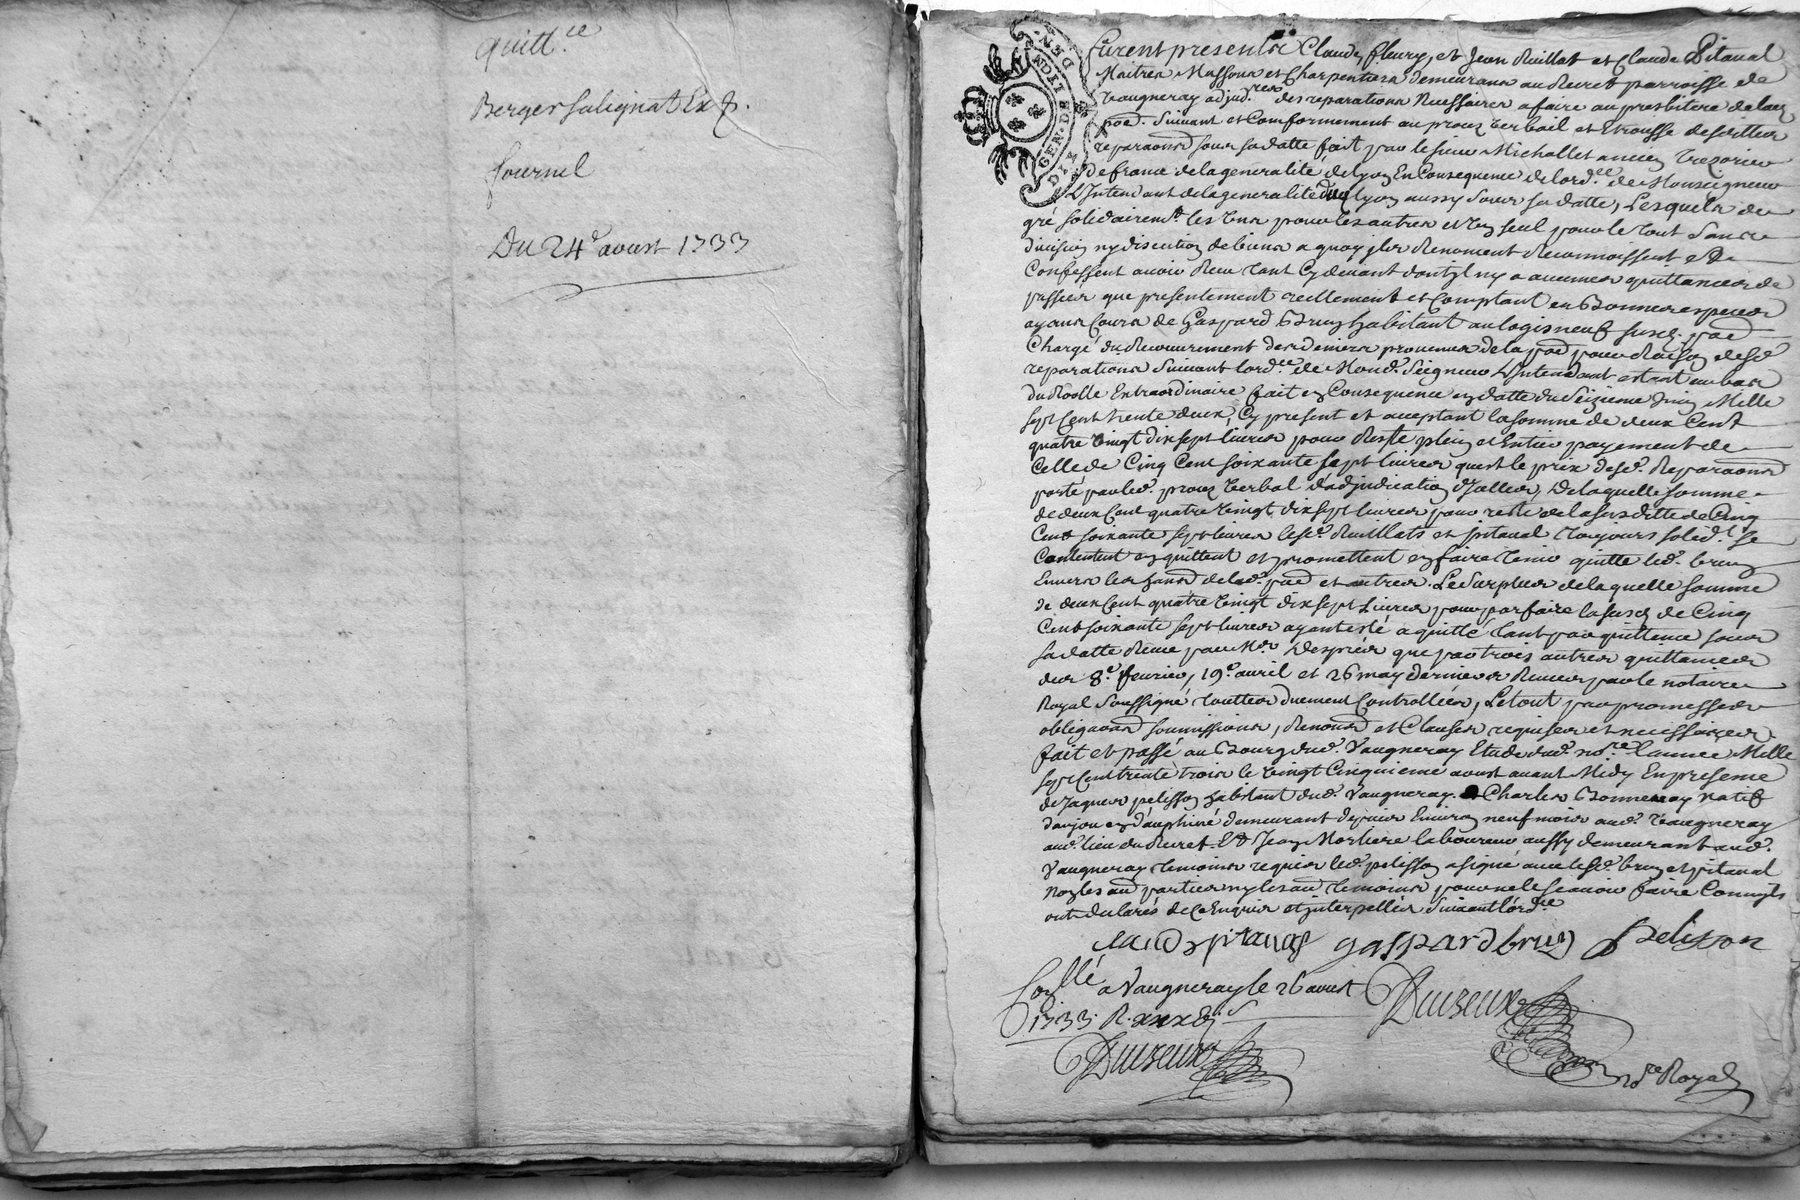 quitt.ce
Berger Salignat Ex
fournel
Du 24e aoust 1733
GEN. DE LYON
DIX DEN.
furent presents Claude fleury, et Jean Ruillat et Claude Pitaval
Maitres Massons et Charpentiers demeurans au Recret parroisse de
Vaugneray adjud.res des reparations Necessaires a faire au presbitere de lad.
parr. Suivant et Conformement au procez verbail et Etrousse desdittes
reparaons sous sa datte fait par le sieur Michallet ancien Trezorier
de france de la generalité de Lyon En Consequence de lord.ce de Monseigneur
L'Intendant de la generalité de Lyon aussy sous sa datte, Lesquels de
gré solidairem.t les Uns pour les autres et Un seul pour le Tout sans
division ny discution de biens a quoy ils Renoncent Reconnoissent et
Confessent avoir Receu tant Cydevant dont il ny a aucunes quittances de
passées que presentement reellement et Comptant en Bonnes especes
ayans Cours de Gaspard Bruy habitant au logis neuf susd. par.
Chargé du Recouvrement des deniers provenus de la par. pour Raison desd.
reparations Suivant lord.ce de Mond. Seigneur L'Intendant estant au bas
du Roolle Extraordinaire fait en Consequence en datte du seizieme Juin Mille
sept Cent trente deux, Cy present et acceptant la somme de deux Cent
quatre vingt dix sept livres pour Reste plein et Entier payement de
Celle de Cinq Cent soixante sept livres quest le prix desd. Reparaons
porté par led. procez verbal d'adjudication d'Icelles, De laquelle somme
de deux Cent quatre vingt dix sept livres pour reste de la susditte de Cinq
Cent soixante sept livres lesd. Ruillats et pitaval toujours solid.t se
Contentent en quittent et promettent en faire tenir quitte led. bruy
Envers les hans de lad. par. et autres. Le surplus de laquelle somme
de deux Cent quatre vingt dix sept Livres pour parfaire la susd. de Cinq
Cent soixante sept livres ayant esté aquitté tant par quittence sous
sa datte Receue par Me Despriés que par trois autres quittances
des 8e fevrier, 19e avril et 26 may derniers Receues par le notaire
Royal soussigné touttes duement Controllées, Le tout par promesses
obligaons soumissions, Renons et Clauses requises et necessaires
fait et passé au Bourg dud. Vaugneray Etude dud. no.re l'année Mille
sept Cent trente trois le vingt Cinquieme aoust avant Midy En presence
de Jaques pelisson habitant dud. Vaugneray. Charles Bonneray natif
danjou en dauphiné demeurant depuis Environ neuf mois aud. Vaugneray
aud. lieu du Recret. Et Jean Morliere laboureur aussy demeurant aud.
Vaugneray temoins requis led. pelisson a signé avec lesd. bruy et pitaval
non les au. parties ny les au. temoins pour ne le scavoir faire Comm'ils
ont declarés de Ce Enquis et interpellés suivant lord.ce
claude pitaval gaspard bruy Pelisson
Con.llé a Vaugneray le 26 aoust
1733. R.
Duizeux
Duizeux
no.re Royal